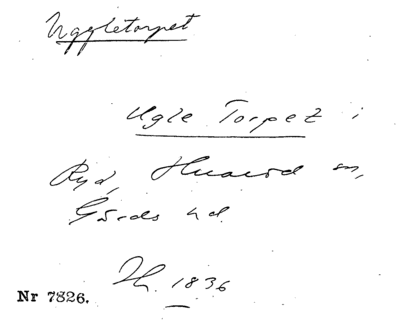 Uggletorpet
Ugle Torpet i
Ryd, Hvarod sn,
Gärds hd.
Jb. 1836
Nr 7826.